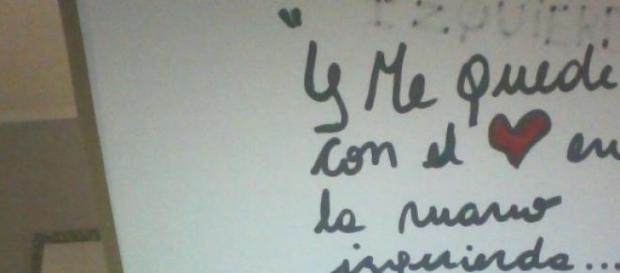 IZQUIER
"Y Me Quedé
con el ❤ en
la mano
izquierda...